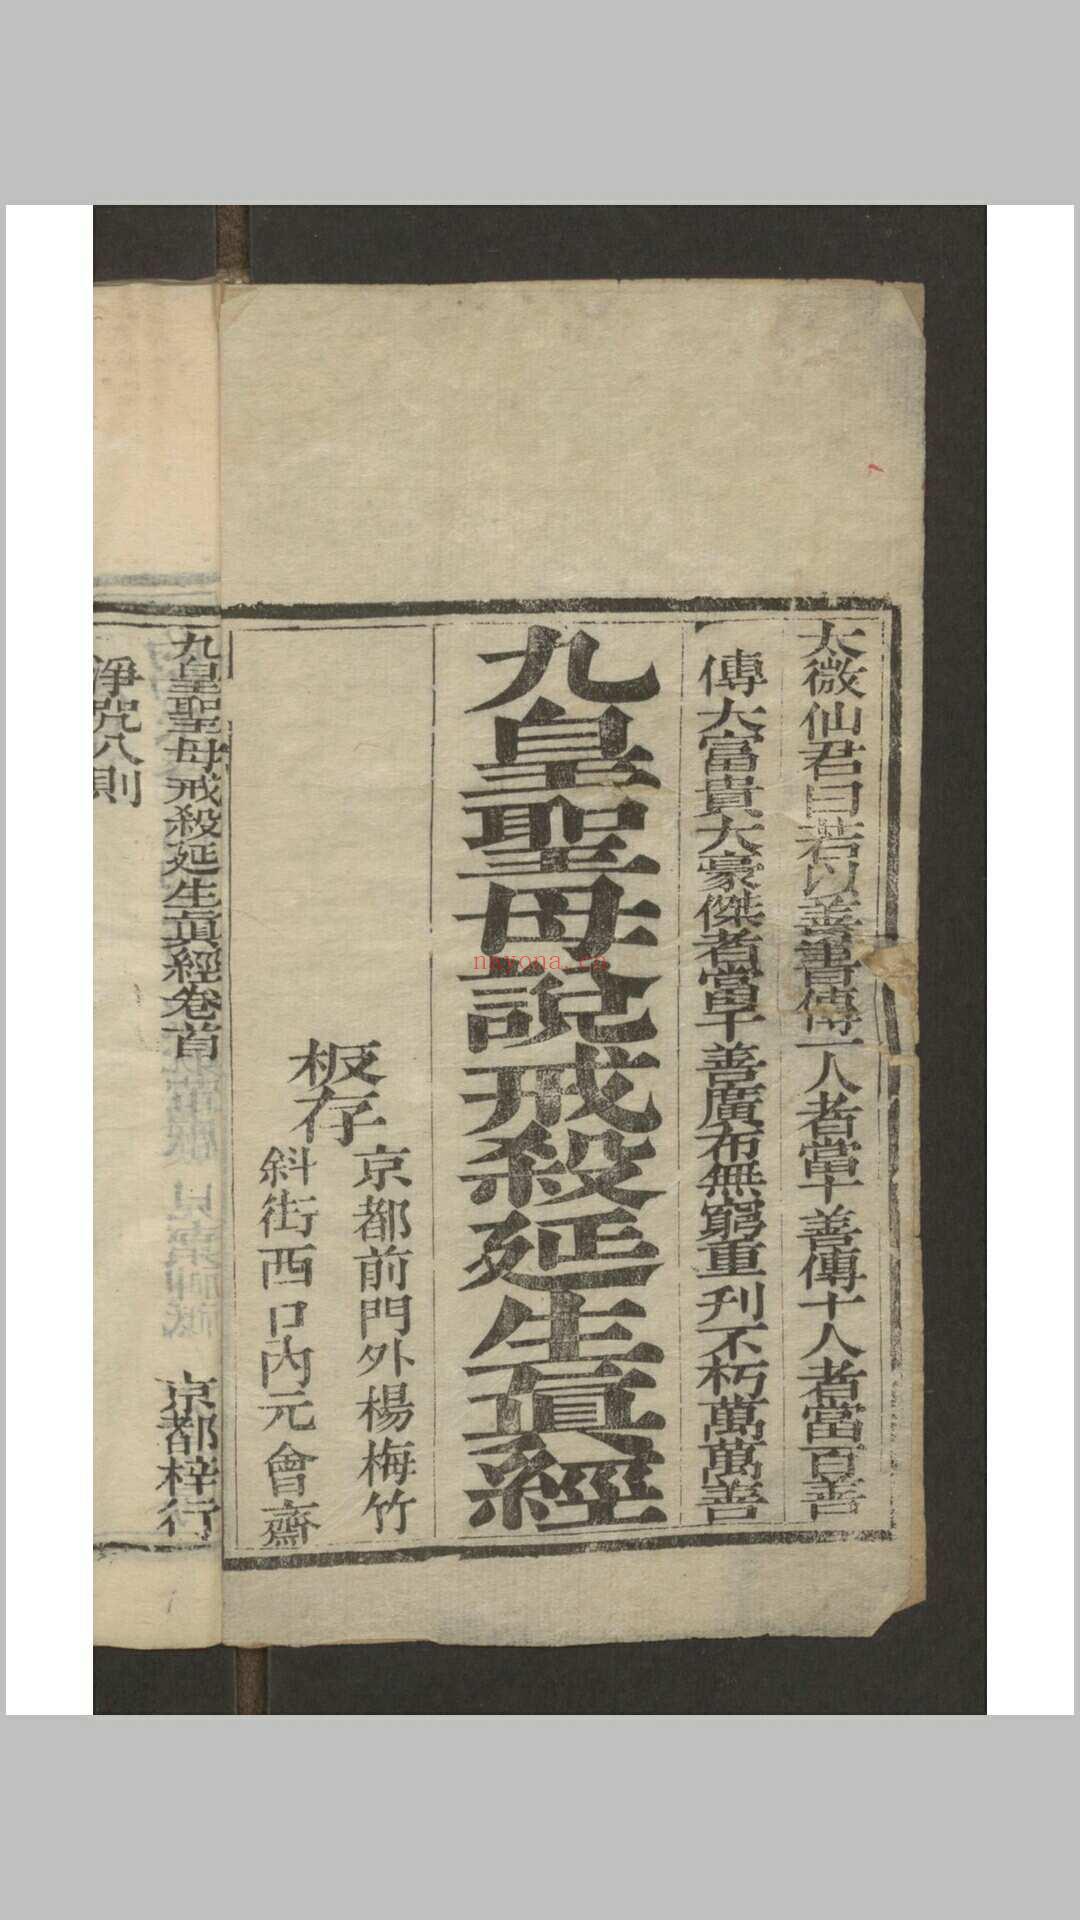 太微仙君曰若以善書傳一人者當十善傳十人者當百善
傳大富貴大豪傑者當千善廣布無窮重刋不朽萬萬善
九皇聖母說戒殺延生眞經
板存
京都前門外楊梅竹
斜街西口內元會齋
九皇聖母戒殺延生眞經卷首
京都梓行
淨咒八則
nayona.cn